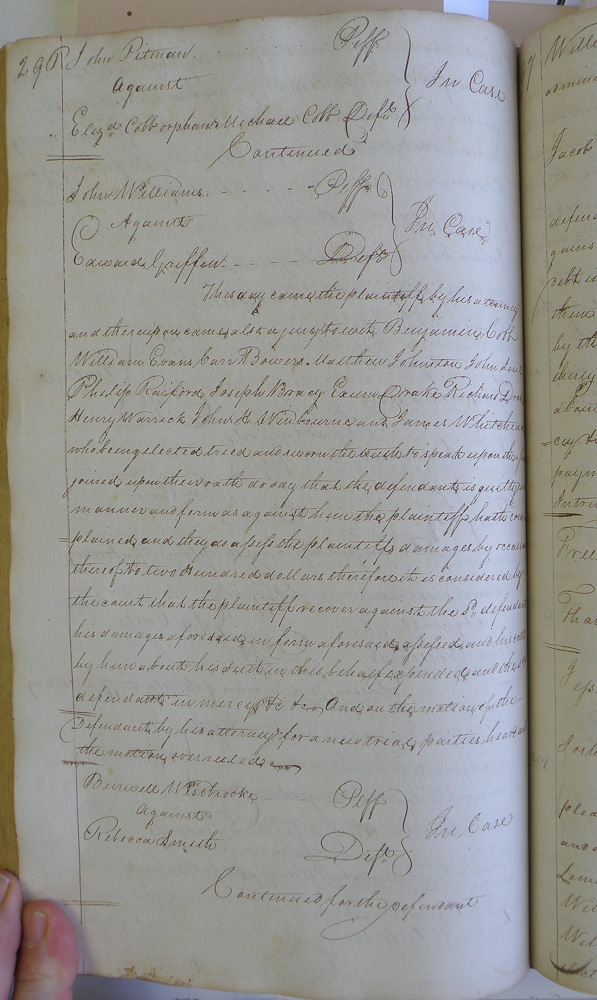 296 John Pitman Plff
Against In Case
Eliza Cobb orphan Michael Cobb Deft
Continued
John Williams Plff
Against In Case
Edward Griffin Deft
This day came the plaintiff by his attorney
and thereupon came also a jury towit Benjamin Cobb
William Evans Carr Bowers Matthew Johnston John
Philip Raiford Joseph Bracy Exum Drake Richard
Henry Warrick John H. Winbourne and James Whitehead
who being elected tried and sworn the truth to speak upon the
joined upon their oath do say that the defendant is guilty in
manner and form as against him the plaintiff hath com
plained and they do assess the plaintiffs damages by occasion
thereof to two Hundred dollars therefore it is considered by
the court that the plaintiff recover against the sd. defendant
his damages aforesaid in form aforesaid assessed and his costs
by him about his suit in this behalf expended and the sd
defendant in mercy &c And on the motion of the
Defendant by his attorney for a new treal, parties heard and
the motion overruled
Burwell Westbrooke Plff
Against In Case
Rebecca Smith Deft
Continued for the defendant
7 Willi
Jacob
defen
gains
debt is
them
by the
about
paym
Intr
Tha
Jeps
plea
and
Wil
Wil